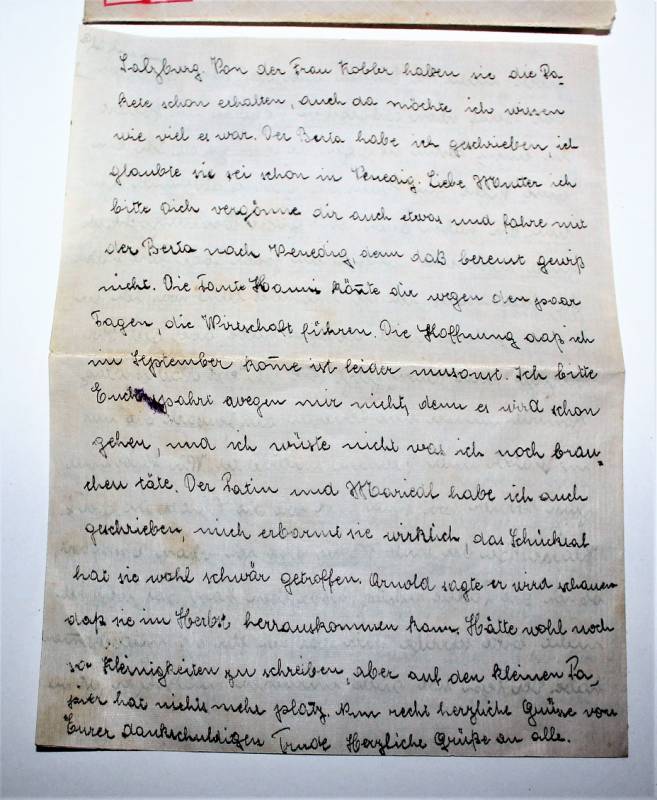 Salzburg. Von der Frau Kobler haben sie die Pa-
kete schon erhalten, auch da möchte ich wissen
wie viel es war. Der Berta habe ich geschrieben, ich
glaubte sie sei schon in Venedig. Liebe Mutter ich
bitte Dich vergönne dir auch etwas und fahre mit
der Berta nach Venedig, denn daß bereust gewiß
nicht. Die Tante Hanni könte dir wegen den paar
Tagen, die Wirtschaft führen. Die Hoffnung daß ich
im September kome ist leider umsonst. Ich bitte
Euch spahrt wegen mir nicht, denn es wird schon
gehen, und ich wüste nicht was ich noch brau-
chen täte. Der Patin und Mariedl habe ich auch
geschrieben, mich erbarmt sie wirklich, das Schicksal
hat sie wohl schwär getroffen. Arnold sagte er wird schauen
daß sie im Herbst herrauskommen kann. Hätte wohl noch
so Kleinigkeiten zu schreiben, aber auf den kleinen Pa-
pier hat nichts mehr platz. Nun recht herzliche Grüße von
Eurer dankschuldigen Trude Herzliche Grüße an alle.